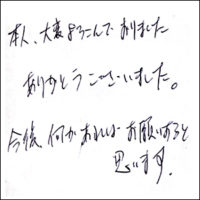 本人、大変よろこんでおりました
ありがとうございました。
今後、何かあればお願いすると
思います。